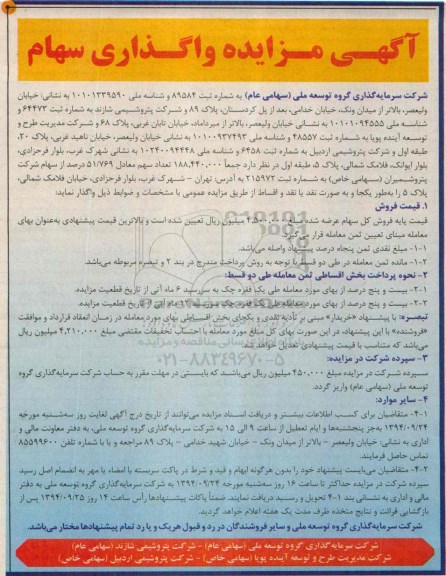 آگهی مزایده واگذاری سهام
شرکت سرمایه‌گذاری گروه توسعه ملی (سهامی عام) به شماره ثبت ۸۹۵۸۴ و شناسه ملی ۱۰۱۰۱۳۳۹۵۹۰ به نشانی: خیابان
ولیعصر، بالاتر از میدان ونک، خیابان خدامی، بعد از پل کردستان، پلاک ۸۹ و شرکت پتروشیمی شازند به شماره ثبت ۶۴۴۷۳ و
شناسه ملی ۱۰۱۰۱۰۹۴۵۵۵ به نشانی خیابان ولیعصر، بالاتر از میرداماد، خیابان تابان غربی، پلاک ۶۸ و شرکت مدیریت طرح و
توسعه آینده پویا به شماره ثبت ۴۸۵۵۷ و شناسه ملی ۱۰۱۰۰۹۳۷۴۹۳ به نشانی خیابان ولیعصر، خیابان ناهید غربی، پلاک ۲۰،
طبقه اول و شرکت پتروشیمی اردبیل به شماره ثبت ۶۴۵۸ و شناسه ملی ۱۰۲۴۰۰۹۴۴۴۸ به نشانی شهرک غرب، بلوار فرحزادی،
بلوار ایوانک، فلامک شمالی، پلاک ۵، طبقه اول در نظر دارد جمعاً ۱۸۸,۴۴۰,۰۰۰ تعداد سهم معادل ۵۱/۷۶۹ درصد از سهام شرکت
پتروشیمیران (سهامی خاص) به شماره ثبت ۲۱۵۹۷۲ به آدرس: تهران - شهرک غرب، بلوار فرحزادی، خیابان فلامک شمالی،
پلاک ۵ را به‌طور یکجا و به صورت نقد یا نقد و اقساط از طریق مزایده عمومی با مشخصات و ضوابط ذیل واگذار نماید:
۱. قیمت فروش
قیمت پایه فروش کل سهام عرضه شده میلیون ریال تعیین شده است و بالاترین قیمت پیشنهادی به‌عنوان بهای
معامله مبنای تعیین ثمن معامله قرار می‌گیرد.
۱-۱- مبلغ نقدی ثمن پنجاه درصد پیشنهاد واصله می‌باشد.
۱-۲- مانده ثمن معامله در طی دو قسط با توجه به روش پرداخت مندرج در بند ۲ و تبصره مربوطه می‌باشد.
۲- نحوه پرداخت بخش اقساطی ثمن معامله طی دو قسط:
۲-۱- بیست و پنج درصد از بهای مورد معامله طی یک فقره چک به سررسید ۶ ماه آتی از تاریخ قطعیت مزایده.
۲-۲- بیست و پنج درصد از بهای مورد معامله طی یک فقره چک به از تاریخ قطعیت مزایده.
تبصره: با پیشنهاد «خریدار» مبنی بر تأدیه نقدی و یکجای بخش اقساطی بهای مورد معامله در زمان انعقاد قرارداد و موافقت
«فروشنده» با این پیشنهاد، در این صورت بهای کل مبلغ مورد معامله با احتساب تخفیفات مقتضی مبلغ ۴,۲۱۰,۰۰۰ میلیون ریال
می‌باشد که متناسب با قیمت پیشنهادی تعدیل خواهد شد.
۳- سپرده شرکت در مزایده:
سپرده شرکت در مزایده مبلغ ۴۵۰,۰۰۰ میلیون ریال می‌باشد که بایستی در مهلت مقرر به حساب شرکت سرمایه‌گذاری گروه
توسعه ملی (سهامی عام) واریز گردد.
۴- سایر موارد:
۴-۱- متقاضیان برای کسب اطلاعات بیشتر و دریافت اسناد مزایده می‌توانند از تاریخ درج آگهی لغایت روز سه‌شنبه مورخه
۱۳۹۴/۰۹/۲۴ به‌جز پنجشنبه‌ها و ایام تعطیل از ساعت ۹ الی ۱۵ به شرکت سرمایه‌گذاری گروه توسعه ملی، به دفتر معاونت مالی و
اداری به نشانی: خیابان ولیعصر - بالاتر از میدان ونک - خیابان شهید خدامی - پلاک ۸۹ مراجعه و یا با شماره تلفن ۸۵۵۹۹۶۰۰
تماس حاصل فرمایند.
۴-۲- متقاضیان می‌بایست پیشنهاد خود را بدون هرگونه ابهام و قید و شرط در پاکت سربسته با امضاء یا مهر به انضمام اصل رسید
سپرده شرکت در مزایده حداکثر تا ساعت ۱۶ روز سه‌شنبه مورخه ۱۳۹۴/۰۹/۲۴ به شرکت سرمایه‌گذاری گروه توسعه ملی به دفتر
مالی و اداری به نشانی بند ۴-۱ تحویل و رسید دریافت نمایند. ضمناً پاکات پیشنهادها رأس ساعت ۱۴ روز ۱۳۹۴/۰۹/۲۵ پس از
بازگشایی قرائت و نتایج متخذه ظرف مدت یک هفته اعلام خواهد گردید.
شرکت سرمایه‌گذاری گروه توسعه ملی و سایر فروشندگان در رد و قبول هریک و یا رد تمام پیشنهادها مختار می‌باشد.
شرکت سرمایه‌گذاری گروه توسعه ملی (سهامی عام) - شرکت پتروشیمی شازند (سهامی عام)
شرکت مدیریت طرح و توسعه آینده پویا (سهامی خاص) - شرکت پتروشیمی اردبیل (سهامی خاص)
۰۲۱-۸۸۳۴۹۶۷۰-۵